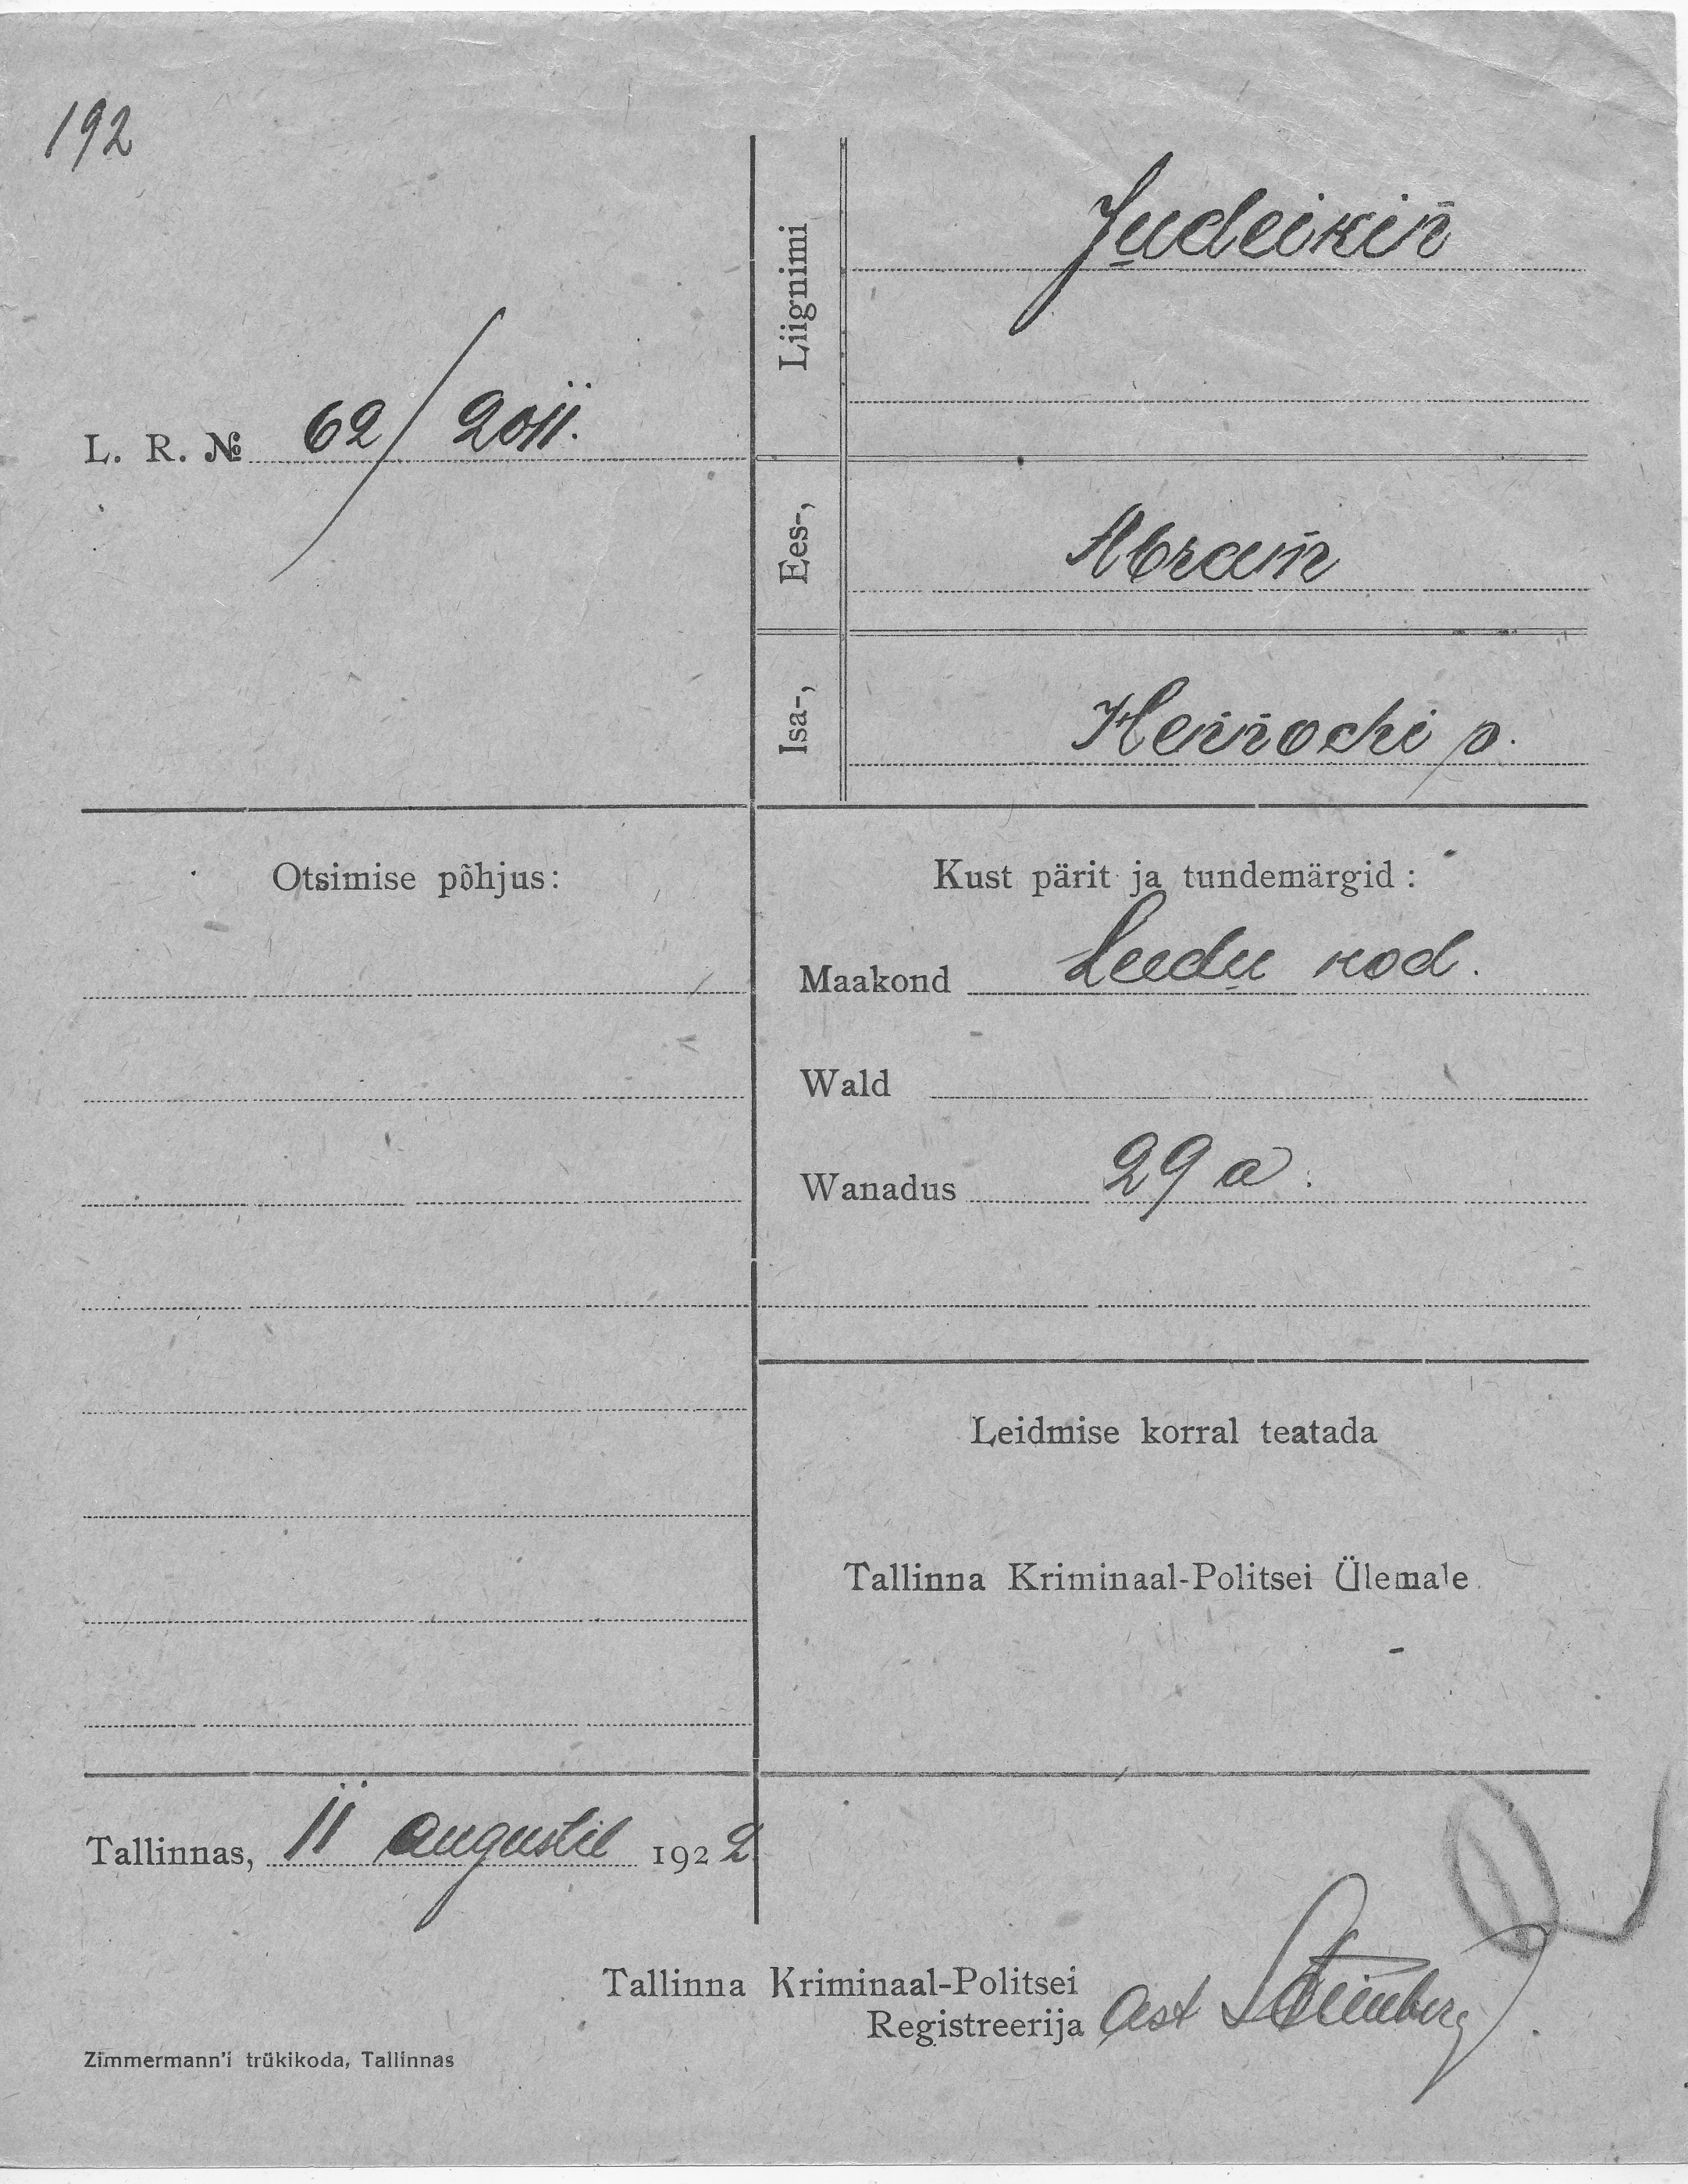 192
L. R. № 62/2011.
Liignimi
Judeikin
Ees-,
Abram
Isa-,
Hennochi p.
Otsimise põhjus:
Kust pärit ja tundemärgid :
Maakond Leedu kod.
Wald
Wanadus 29 a.
Leidmise korral teatada
Tallinna Kriminaal-Politsei Ülemale
Tallinnas, 11 augustil 1922
Tallinna Kriminaal-Politsei
Registreerija
Zimmermann'i trükikoda, Tallinnas